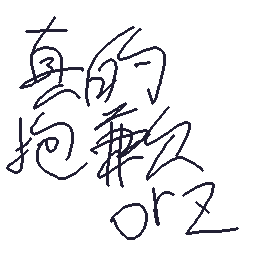 真的
抱歉
orz